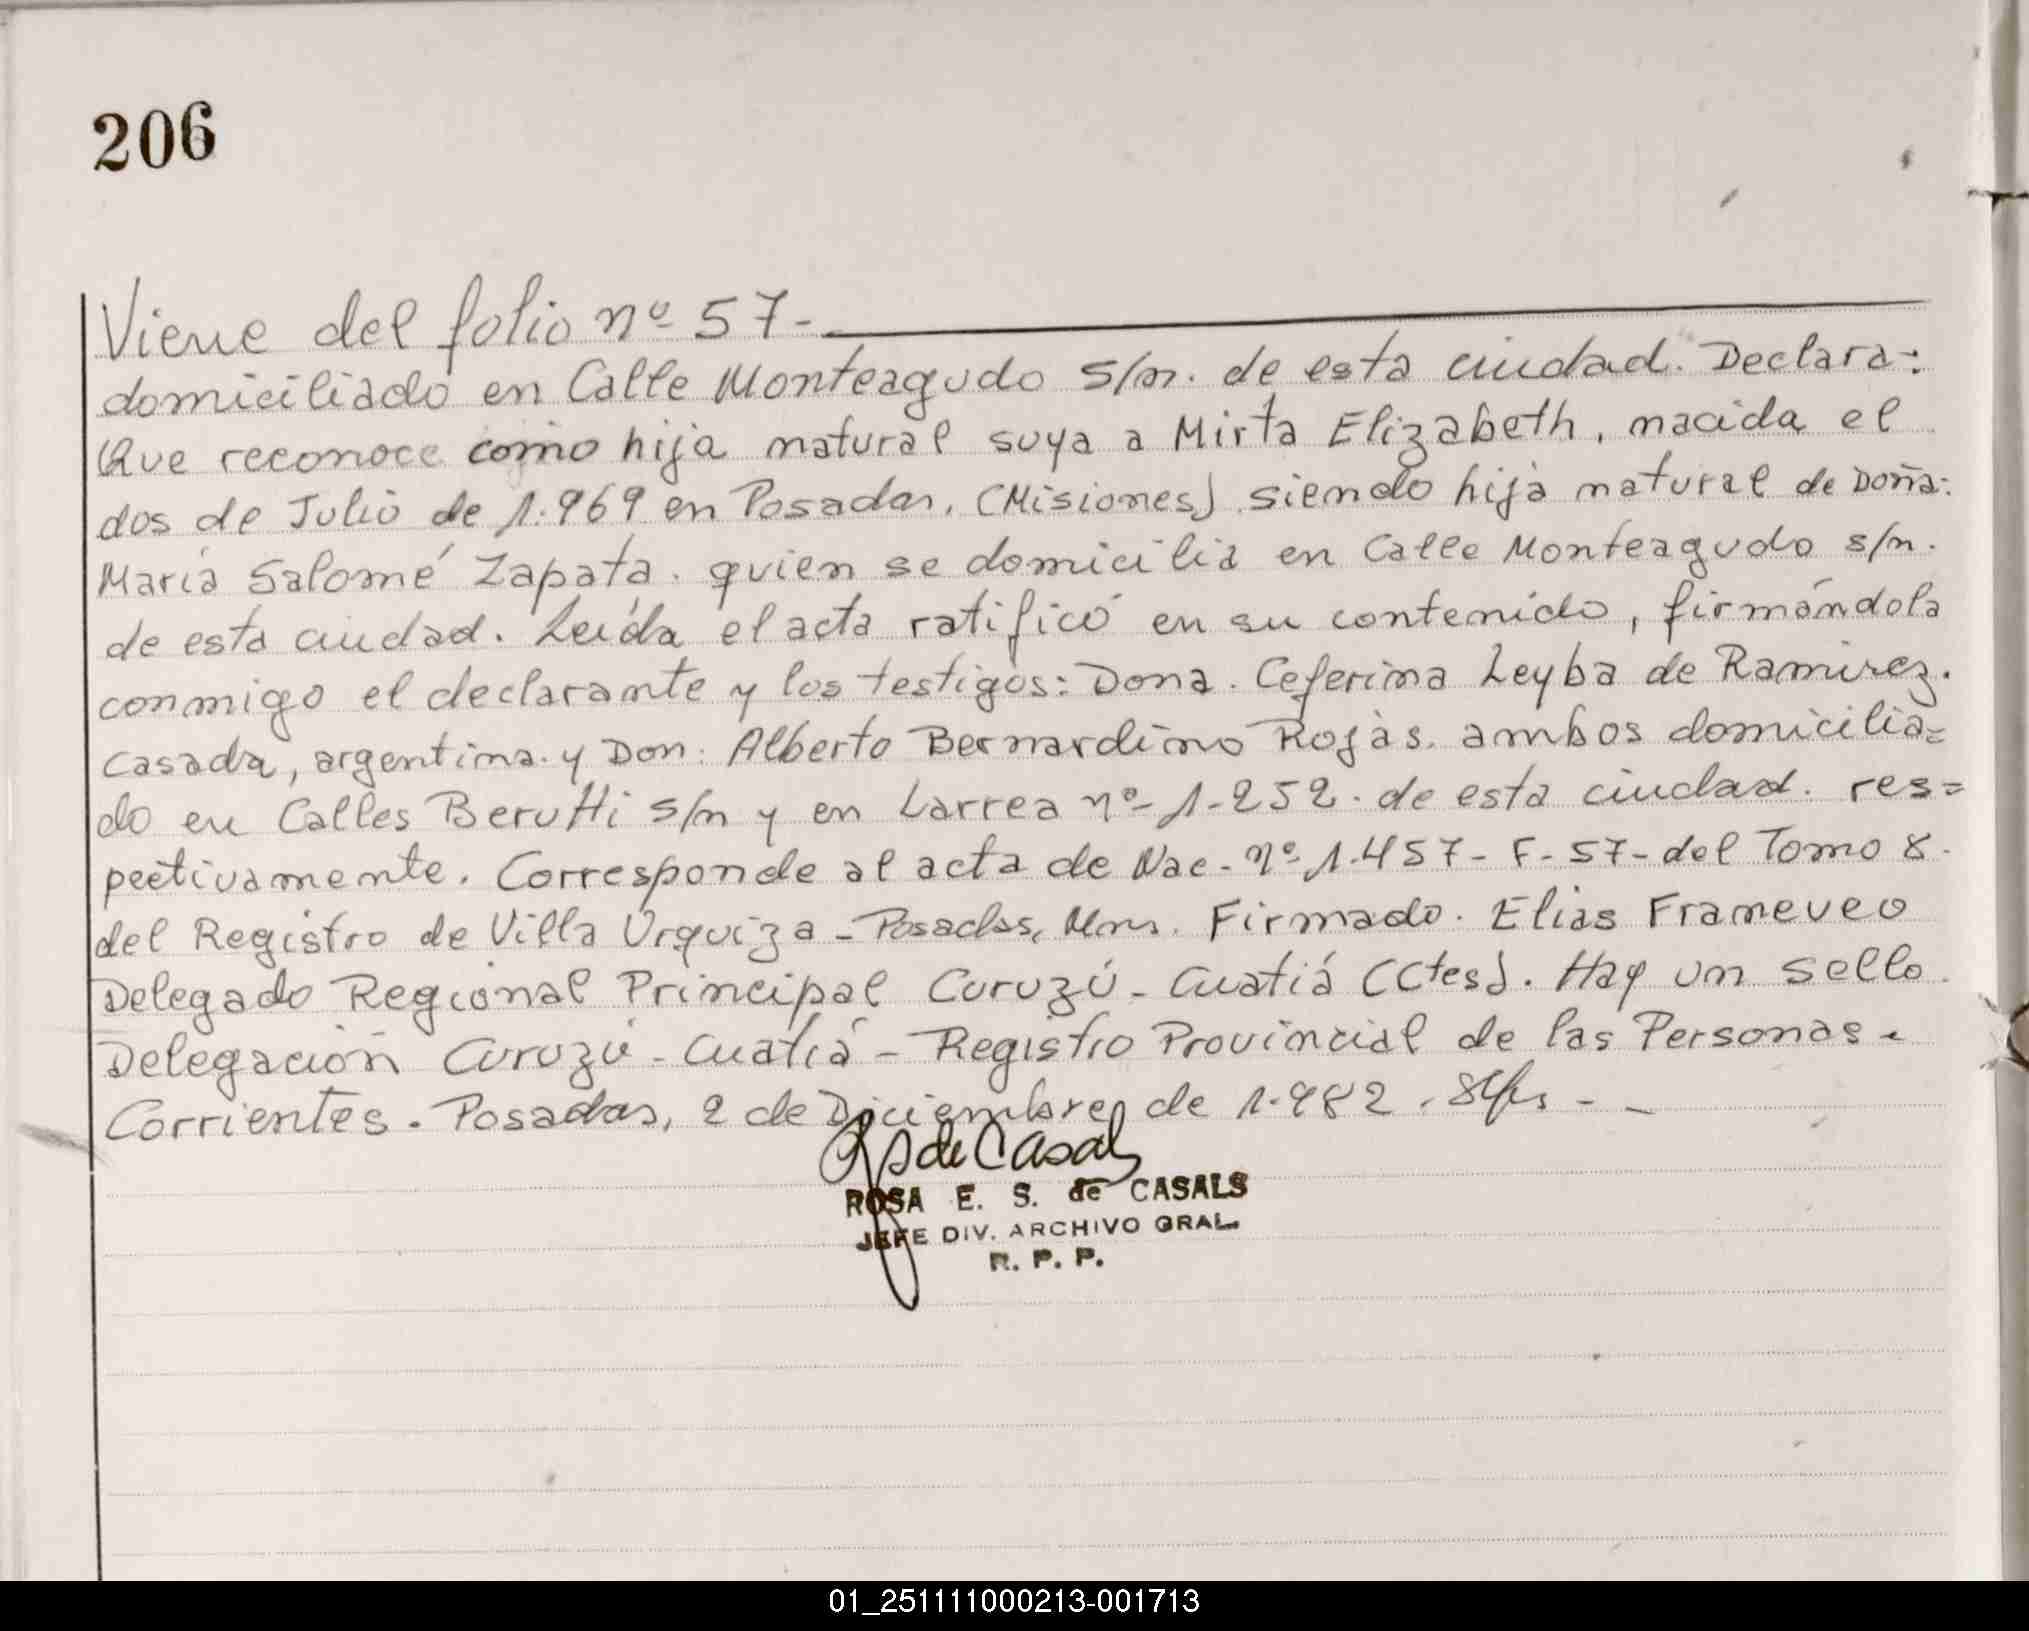 206
Viene del folio nº 57-
domiciliado en Calle Monteagudo s/n. de esta ciudad. Declara:
Que reconoce como hija natural suya a Mirta Elizabeth, nacida el
dos de Julio de 1.969 en Posadas, (Misiones) siendo hija natural de Doña:
María Salomé Zapata. quien se domicilia en Calle Monteagudo s/n.
de esta ciudad. Leída el acta ratificó en su contenido, firmándola
conmigo el declarante y los testigos: Dona. Ceferina Leyba de Ramirez.
casada, argentina. y Don: Alberto Bernardino Rojas. ambos domicilia=
do en Calles Berutti s/n y en Larrea nº 1-252. de esta ciudad. res=
pectivamente. Corresponde al acta de Nac- nº 1.457- F- 57- del Tomo 8.
del Registro de Villa Urquiza - Posadas, Mnes. Firmado. Elias Frameveo
Delegado Regional Principal Curuzú - Cuatiá (Ctes). Hay un sello.
Delegación Curuzú - Cuatiá - Registro Provincial de las Personas -
Corrientes. Posadas, 2 de Diciembre de 1.982.
RS de Casals
ROSA E. S. de CASALS
JEFE DIV. ARCHIVO GRAL.
R. P. P.
01_251111000213-001713